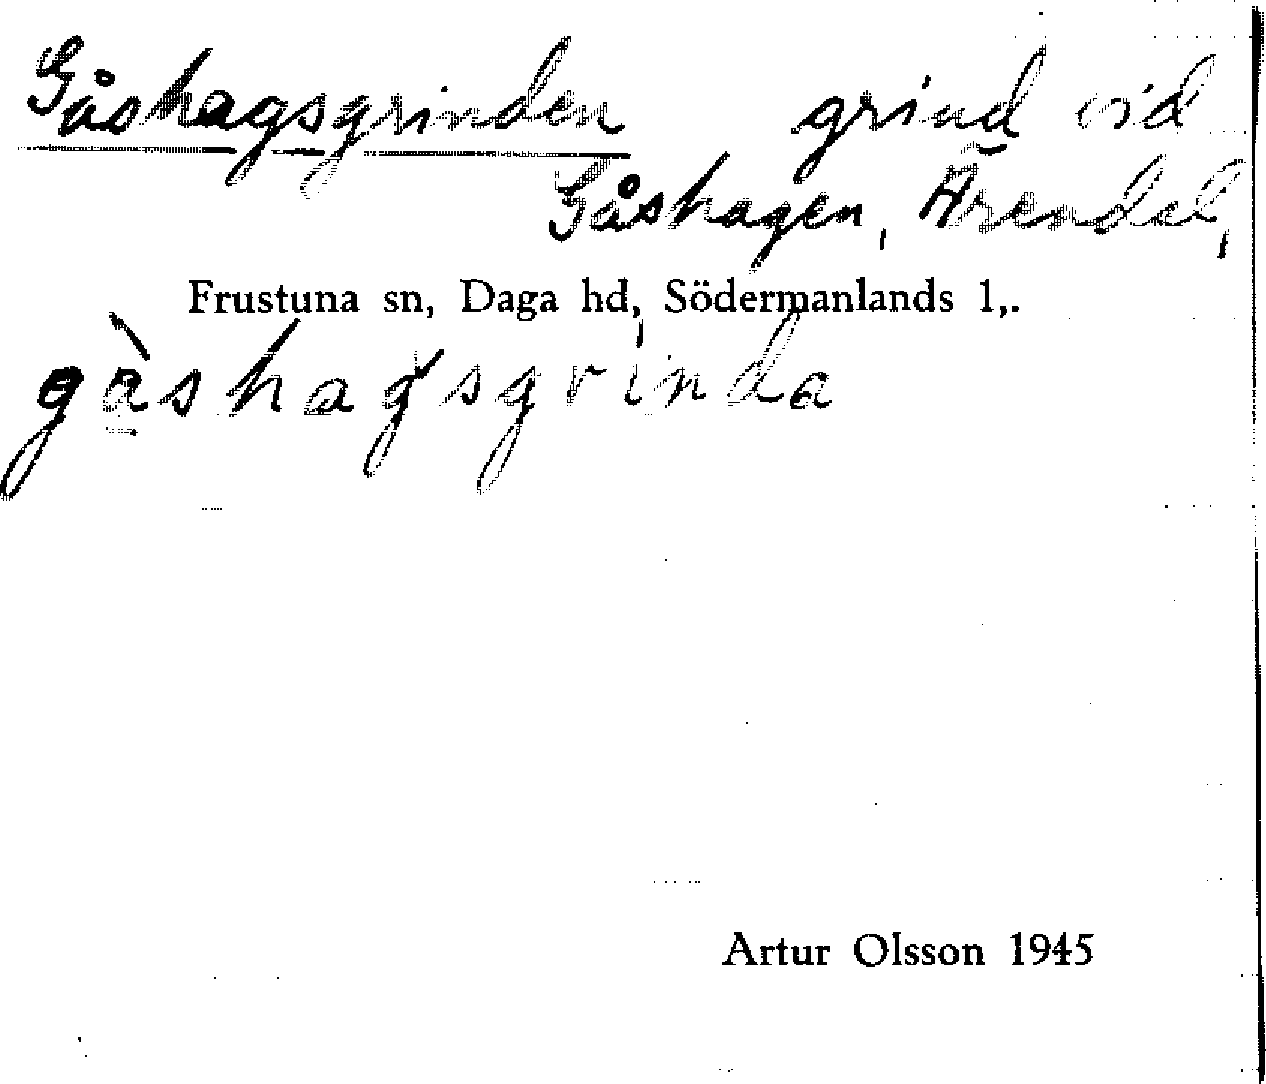 Gåshagsgrinden grind vid
Gåshagen, Ärendal,
Frustuna sn, Daga hd, Södermanlands l,.
gàshagsgrinda
Artur Olsson 1945